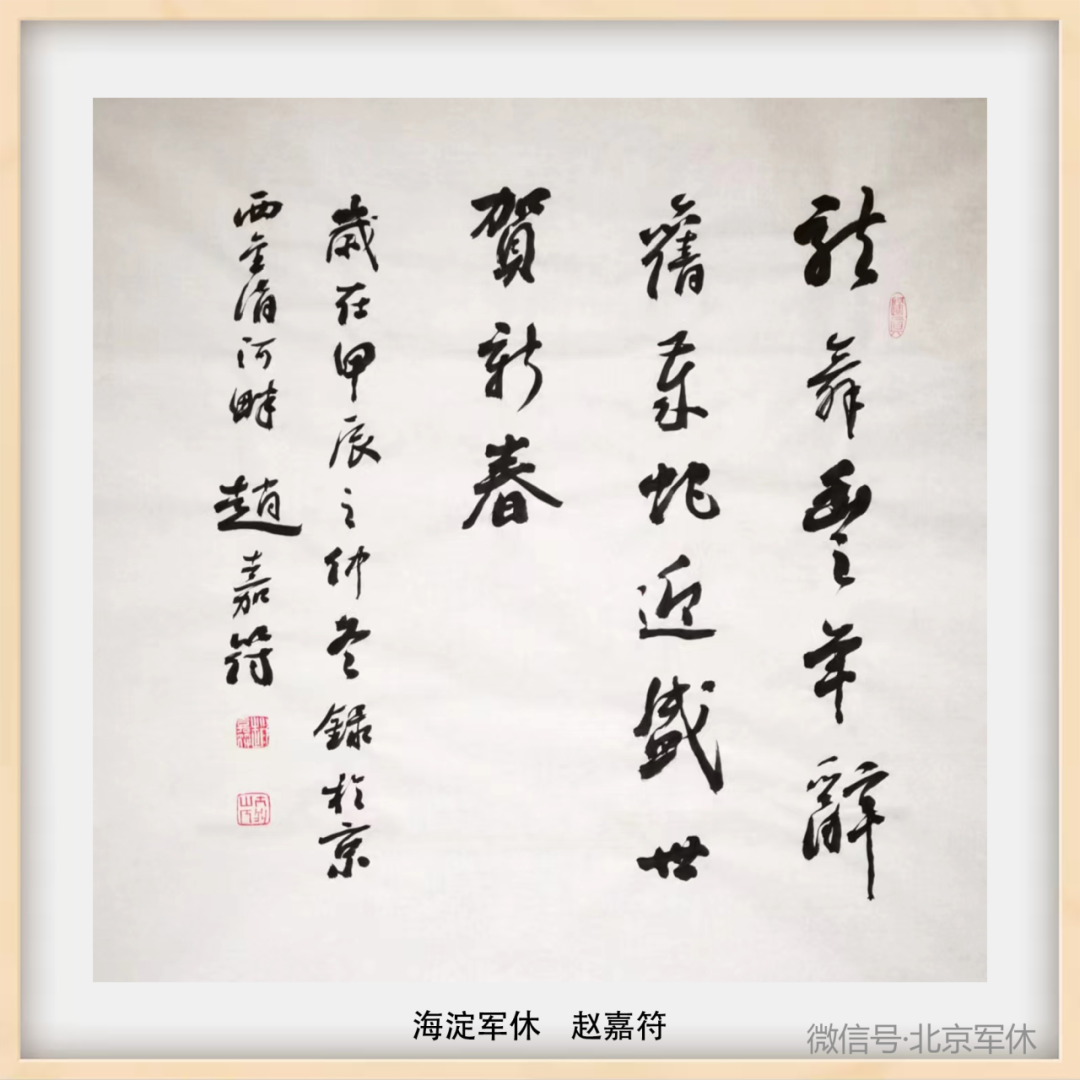 龍舞豐年辭
舊歲蛇迎盛世
賀新春
歲在甲辰之仲冬錄於京
西清河畔 趙嘉符
海淀军休 赵嘉符
微信号·北京军休